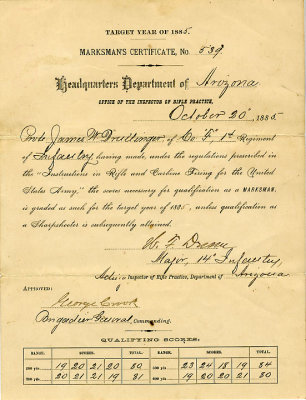 TARGET YEAR OF 1885.
MARKSMAN'S CERTIFICATE, No. 539
Headquarters Department of Arizona
OFFICE OF THE INSPECTOR OF RIFLE PRACTICE,
October 20" 1885
James W. of Co "F" 1st Regiment
of Infantry having made, under the regulations prescribed in
the "Instructions in Rifle and Carbine Firing for the United
States Army," the scores necessary for qualification as a MARKSMAN,
is graded as such for the target year of 1885, unless qualification as
a Sharpshooter is subsequently attained.
W. F.
Major, 14" Infantry
Acting Inspector of Rifle Practice, Department of Arizona
APPROVED:
George Crook
Brigadier General, Commanding.
QUALIFYING SCORES:
RANGE. SCORES. TOTAL. RANGE. SCORES. TOTAL.
19 20 21 20 80 23 24 18 19 84
20 21 21 19 81 19 20 20 21 80